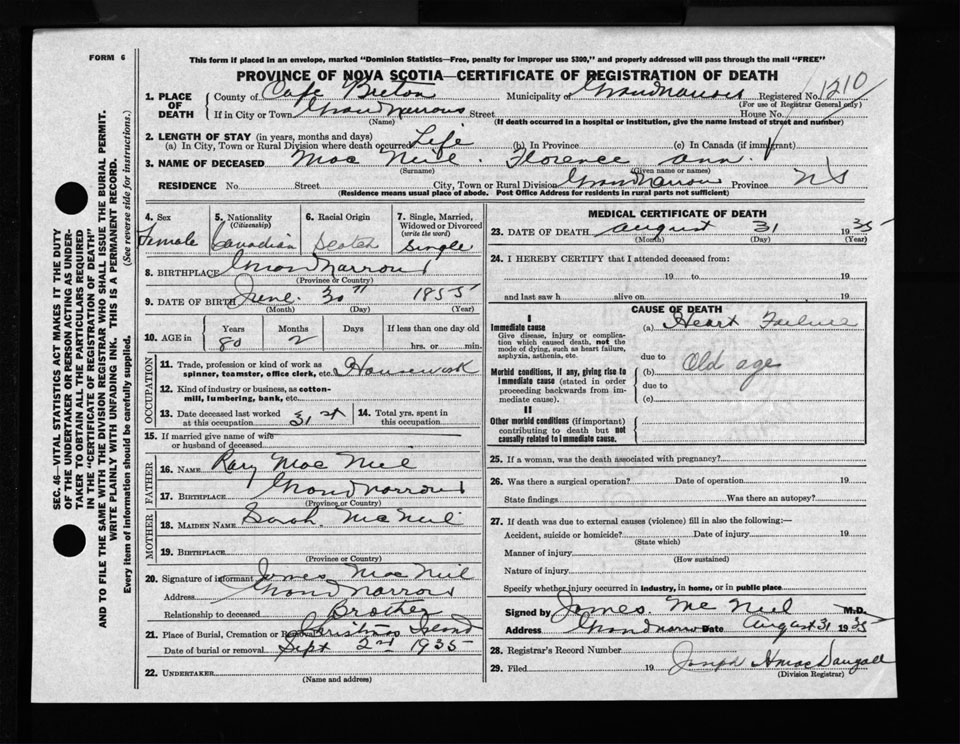 FORM 6
This form if placed in an envelope, marked "Dominion Statistics—Free, penalty for improper use $300," and properly addressed will pass through the mail "FREE"
PROVINCE OF NOVA SCOTIA—CERTIFICATE OF REGISTRATION OF DEATH
1. PLACE OF DEATH
County of Cape Breton Municipality of Grand Narrows Registered No. 1210
(For use of Registrar General only)
If in City or Town Grand Narrows Street House No.
(Name) (If death occurred in a hospital or institution, give the name instead of street and number)
2. LENGTH OF STAY (in years, months and days)
(a) In City, Town or Rural Division where death occurred Life (b) In Province (c) In Canada (if immigrant)
3. NAME OF DECEASED Mac Neil. Florence Ann.
(Surname) (Given name or names)
RESIDENCE No. Street City, Town or Rural Division Grand Narrows Province NS
(Residence means usual place of abode. Post Office Address for residents in rural parts not sufficient)
4. Sex
Female
5. Nationality
(Citizenship)
Canadian
6. Racial Origin
Scotch
7. Single, Married, Widowed or Divorced
(write the word)
Single
8. BIRTHPLACE Grand Narrows
(Province or Country)
9. DATE OF BIRTH June. 30th 1855
(Month) (Day) (Year)
10. AGE in
Years Months Days If less than one day old
80 2
hrs. or min.
OCCUPATION
11. Trade, profession or kind of work as
spinner, teamster, office clerk, etc. Housework
12. Kind of industry or business, as cotton-
mill, lumbering, bank, etc.
13. Date deceased last worked
at this occupation 31st
14. Total yrs. spent in
this occupation
15. If married give name of wife
or husband of deceased
FATHER
16. NAME Rory Mac Neil
17. BIRTHPLACE Grand Narrows
(Province or Country)
MOTHER
18. MAIDEN NAME Sarah. Mc Neil
19. BIRTHPLACE
(Province or Country)
20. Signature of informant James Mac Neil
Address Grand Narrows
Relationship to deceased Brother
21. Place of Burial, Cremation or Removal Christmas Island
Date of burial or removal Sept 2nd 1935
22. UNDERTAKER
(Name and address)
MEDICAL CERTIFICATE OF DEATH
23. DATE OF DEATH August 31 1935
(Month) (Day) (Year)
24. I HEREBY CERTIFY that I attended deceased from:
19 to 19
and last saw h alive on 19
CAUSE OF DEATH
I
Immediate cause
Give disease, injury or complica-
tion which caused death, not the
mode of dying, such as heart failure,
asphyxia, asthenia, etc.
(a) Heart Failure
due to
Morbid conditions, if any, giving rise to
immediate cause (stated in order
proceeding backwards from im-
mediate cause).
(b) Old age
due to
(c)
II
Other morbid conditions (if important)
contributing to death but not
causally related to immediate cause.
25. If a woman, was the death associated with pregnancy?
26. Was there a surgical operation? Date of operation 19
State findings Was there an autopsy?
27. If death was due to external causes (violence) fill in also the following:—
Accident, suicide or homicide? Date of injury 19
(State which)
Manner of injury
(How sustained)
Nature of injury
Specify whether injury occurred in industry, in home, or in public place
Signed by James. Mc Neil M.D.
Address Grand Narrows Date August 31 1935
28. Registrar's Record Number
29. Filed 19 Joseph H MacDougall
(Division Registrar)
SEC. 46—VITAL STATISTICS ACT MAKES IT THE DUTY
OF THE UNDERTAKER OR PERSON ACTING AS UNDER-
TAKER TO OBTAIN ALL THE PARTICULARS REQUIRED
IN THE "CERTIFICATE OF REGISTRATION OF DEATH"
AND TO FILE THE SAME WITH THE DIVISION REGISTRAR WHO SHALL ISSUE THE BURIAL PERMIT.
WRITE PLAINLY WITH UNFADING INK. THIS IS A PERMANENT RECORD.
Every item of information should be carefully supplied. (See reverse side for instructions.)